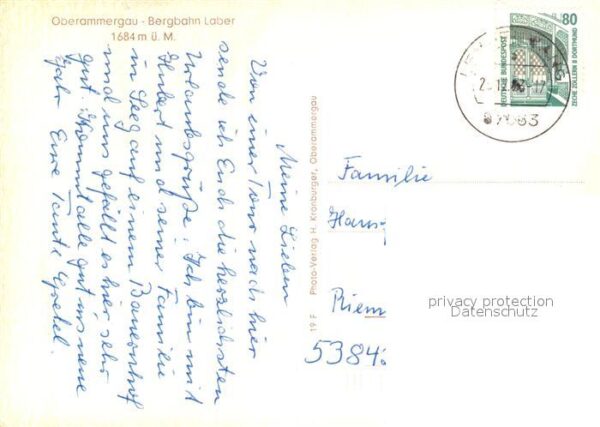 Oberammergau - Bergbahn Laber
1684 m ü. M.
Meine Lieben
Von einer Tour nach hier
sende ich Euch die herzlichsten
Urlaubsgrüße. Ich bin mit
Hubert und seiner Familie
in Seeg auf einem Bauernhof
und uns gefällt es hier sehr
gut. Kommt alle gut ins neue
Jahr Eure Tante Gretel.
19 F Photo-Verlag H. Kronburger, Oberammergau
80
DEUTSCHE BUNDESPOST
ZECHE ZOLLERN II DORTMUND
Familie
Hans
Riem
5384
privacy protection
Datenschutz